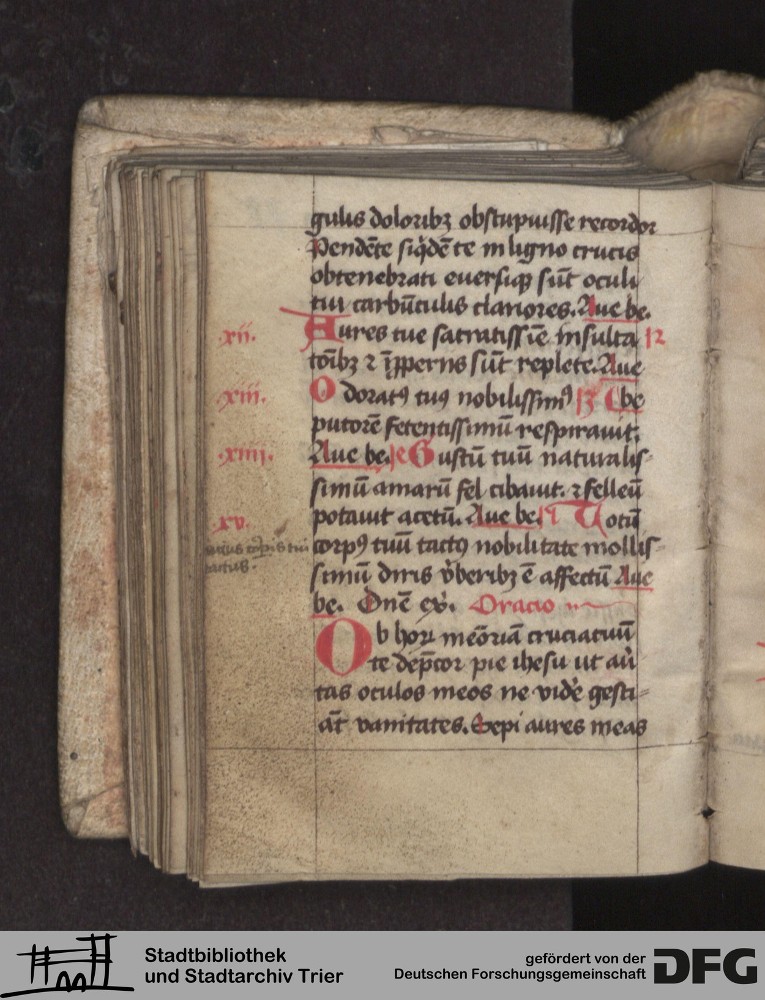 gulis doloribꝫ obstupuisse recordor
Pendēte siq̇dē te in ligno crucis
obtenebrati euersiqꝫ sūt oculi
tui carbūculis clariores. Aue be.
.xii. Aures tue sacratiss īe insulta 12
tōibꝫ ⁊ replete. Aue
.xiii. Odoratꝰ tuꝰ nobilissimꝰ 13 be
putorē fetentissimū respirauit.
.xiiii. Aue be. Gustū tuū naturalis
simū amarū fel cibauit. ⁊ felleū
.xv. potauit acetū. Aue be. Totū
corpꝰ tuū tactꝰ nobilitate mollis
tactus.
simū diris v̄beribꝫ ē affectū Aue
be. Dnē ex̄. Oracio
Ob horꝝ meōriā cruciatuū
te dep̄cor pie ihesu ut au
tas oculos meos ne vidē gesti
āt vanitates. Sepi aures meas
Stadtbibliothek
und Stadtarchiv Trier
gefördert von der
Deutschen Forschungsgemeinschaft
DFG